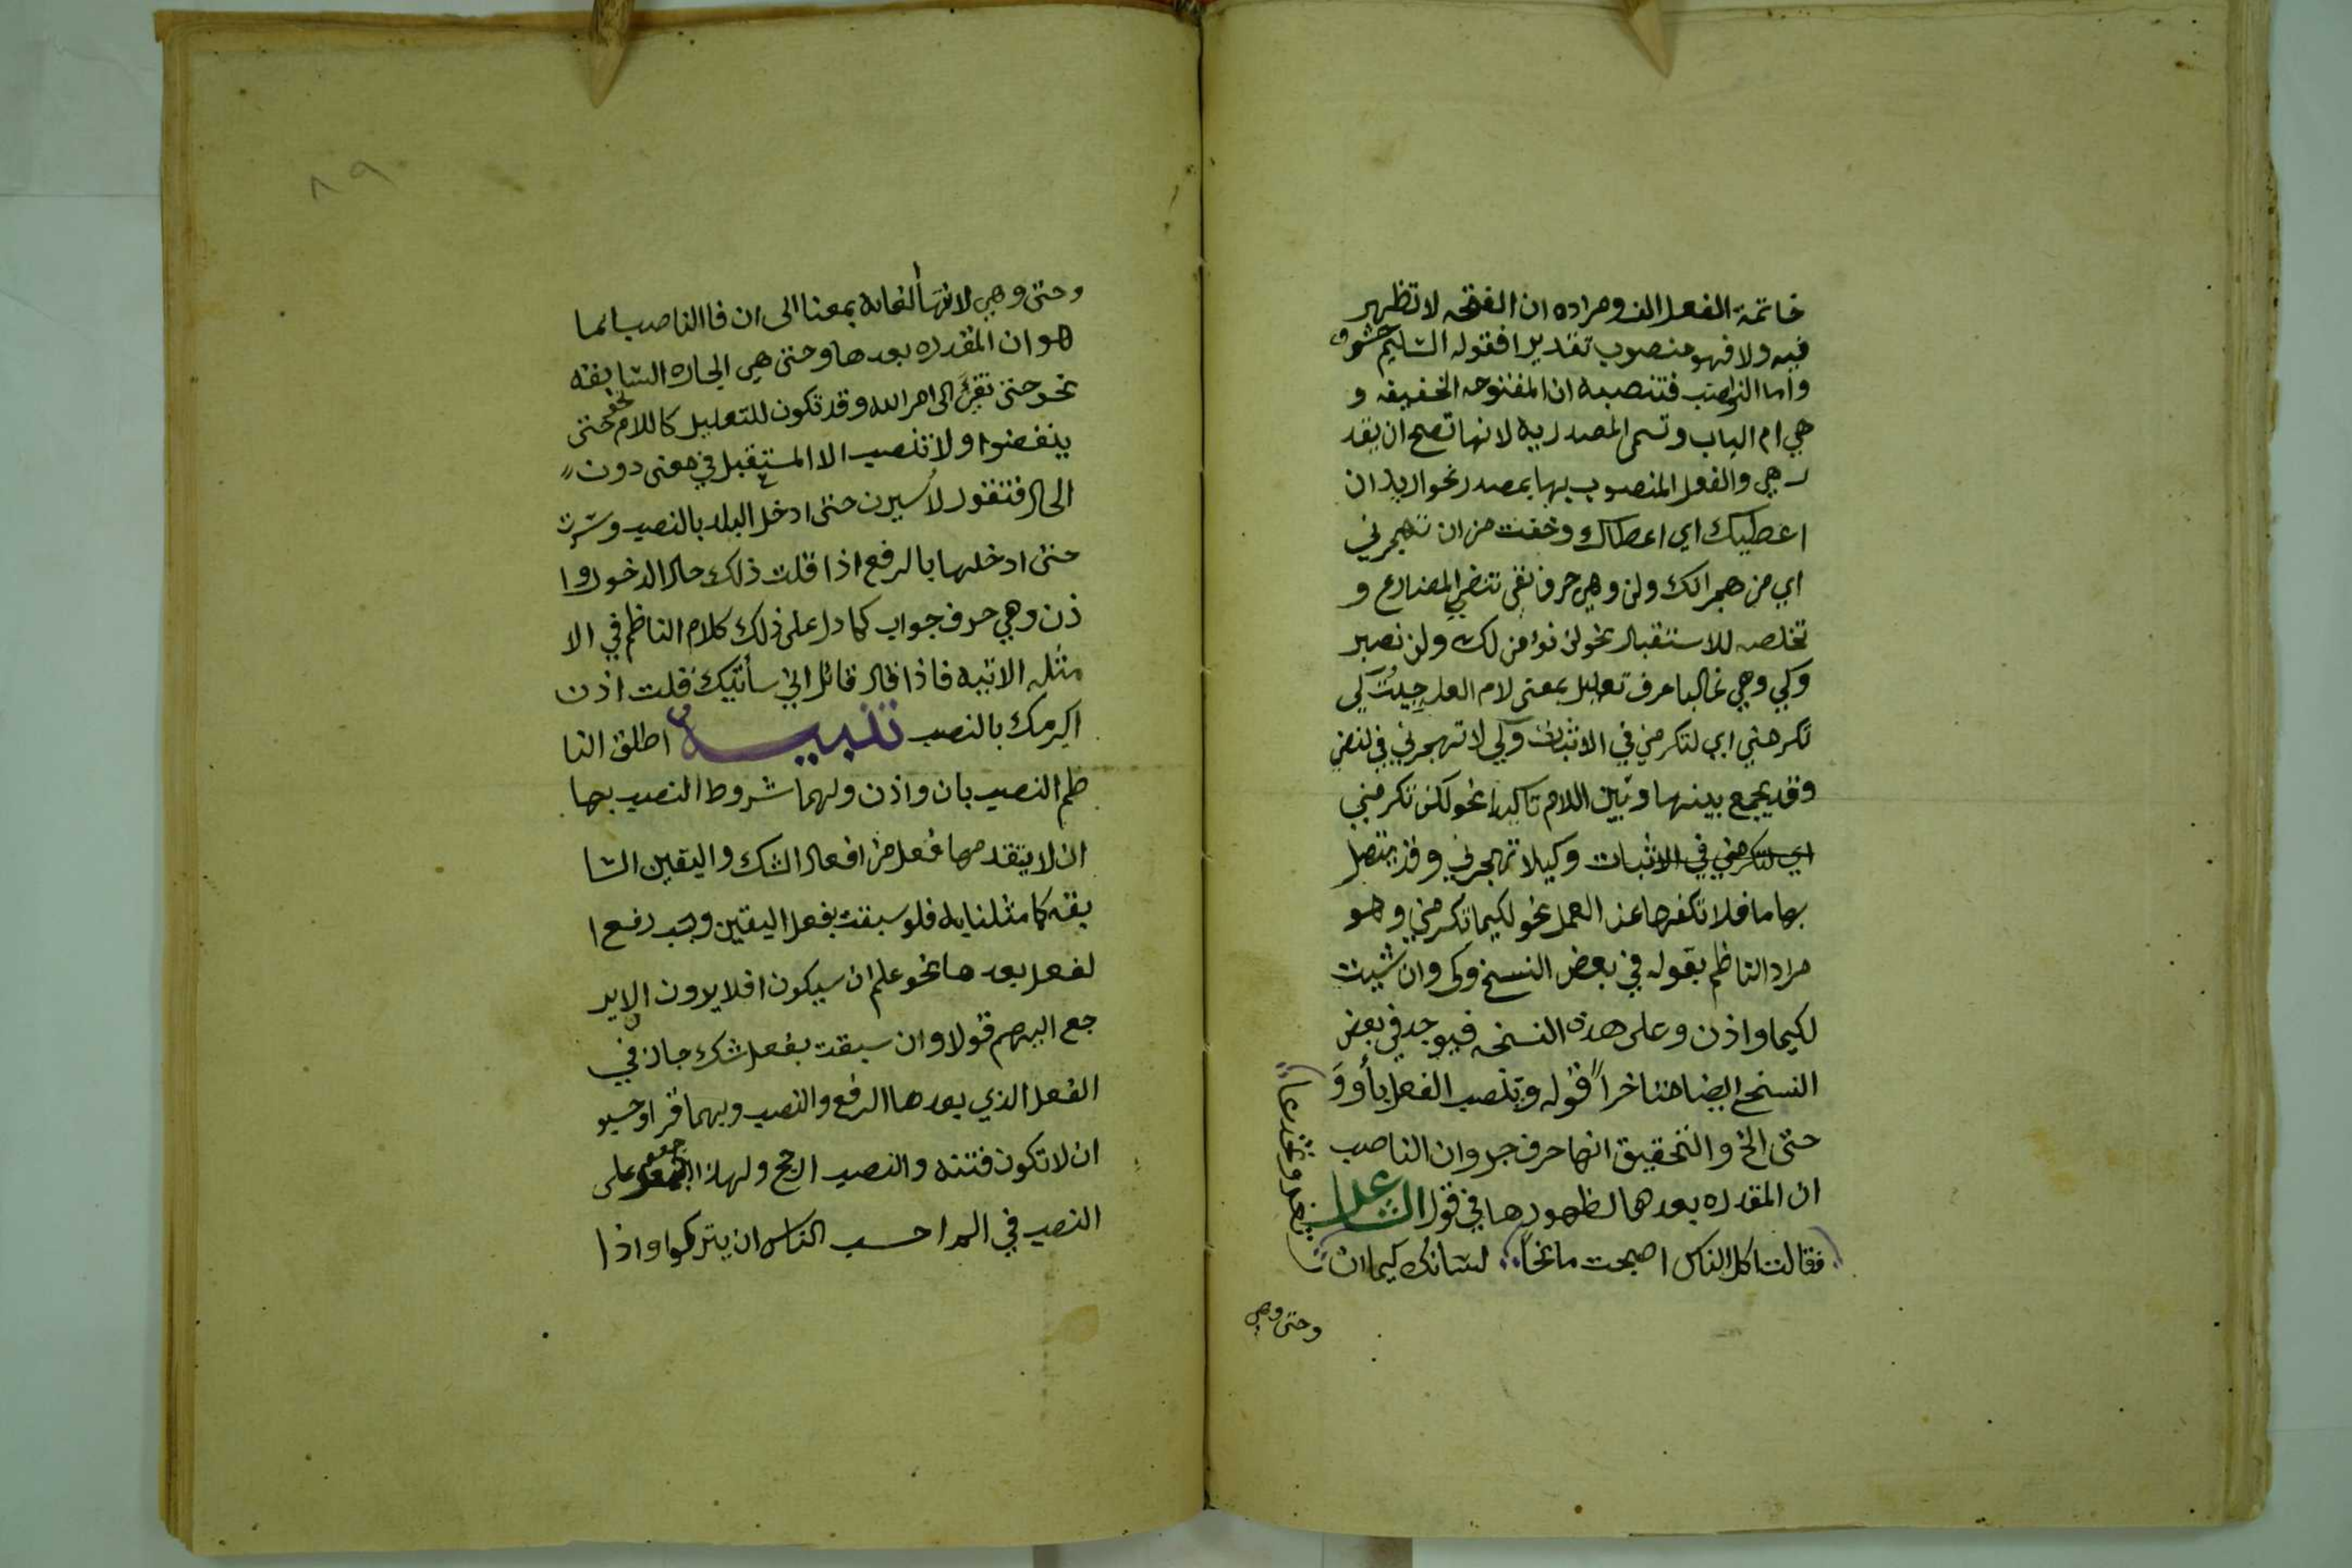 خاتمة الفعل الف ومراده ان الفتحه لا تظهر
فيه ولا فهو منصوب تقديرا فقوله السليم حشو
واما النواصب فتنصبه ان المفتوحه الخفيفه و
هي ام الباب وتسمى المصدريه لانها تصح ان يقد
ر هي والفعل المنصوب بها بمصدر نحو اريد ان
اعطيك اي اعطاك وخفت من ان تهجرني
اي من هجرانك ولن وهي حرف نفى تنفي المضارع و
تخلصه للاستقبال نحو لن نؤمن لك ولن نصبر
وكي وهي غالبا حرف تعليل بمعنى لام العله جيئت كي
تكرمني اي لتكرمني في الاثبات وكي لا تهجرني في لنفي
وقد يجمع بينها وبين اللام تاكيدا نحو لكي تكرمني
اي لتكرمني في الاثبات وكيلا تهجرني وقد يتصل
بها ما فلا تكفها عن العمل نحو لكيما تكرمني وهو
مراد الناظم بقوله في بعض النسخ وكى وان شيت
لكيما واذن وعلى هذه النسخه فيوجد في بعض
النسخ ايضا متاخرا قوله وتنصب الفعل بأو و
حتى الخ والتحقيق انها حرف جر وان الناصب
ان المقدره بعدها لظهورها في قول الشاعر
فقالت اكل الناس اصبحت مانحا لسانك كيما ان
تغر وتخدعا
وحتى وهي
٨٩
وحتى وهي لانتهأ الغايه بمعنا الى ان فا الناصب انما
هو ان المقدره بعدها وحتى هي الجاره السابقه
نحو حتى تفئ الى امر الله وقد تكون للتعليل كاللام نحو حتى
ينفضوا ولا تنصب الا المستقبل في معنى دون
الحال فتقول لأسيرن حتى ادخل البلد بالنصب وسرت
حتى ادخلها بالرفع اذا قلت ذلك حال الدخول وا
ذن وهي حرف جواب كما دل على ذلك كلام الناظم في الا
مثله الاتيه فاذا قال قائل اني سأتيك قلت اذن
اكرمك بالنصب تنبيه اطلق النا
ظم النصب بان واذن ولهما شروط النصب بها
ان لا يتقدمها فعل من افعال الشك واليقين السا
بقه كما مثلنا به فلو سبقت بفعل اليقين وجب رفع ا
لفعل بعدها نحو علم ان سيكون افلا يرون الا ير
جع اليهم قولا وان سبقت بفعل شك جاز في
الفعل الذي بعدها الرفع والنصب وبهما قرا وحسبو
ان لا تكون فتنه والنصب ارجح ولهذا اجمعو على
النصب في الم احسب الناس ان يتركوا واذا